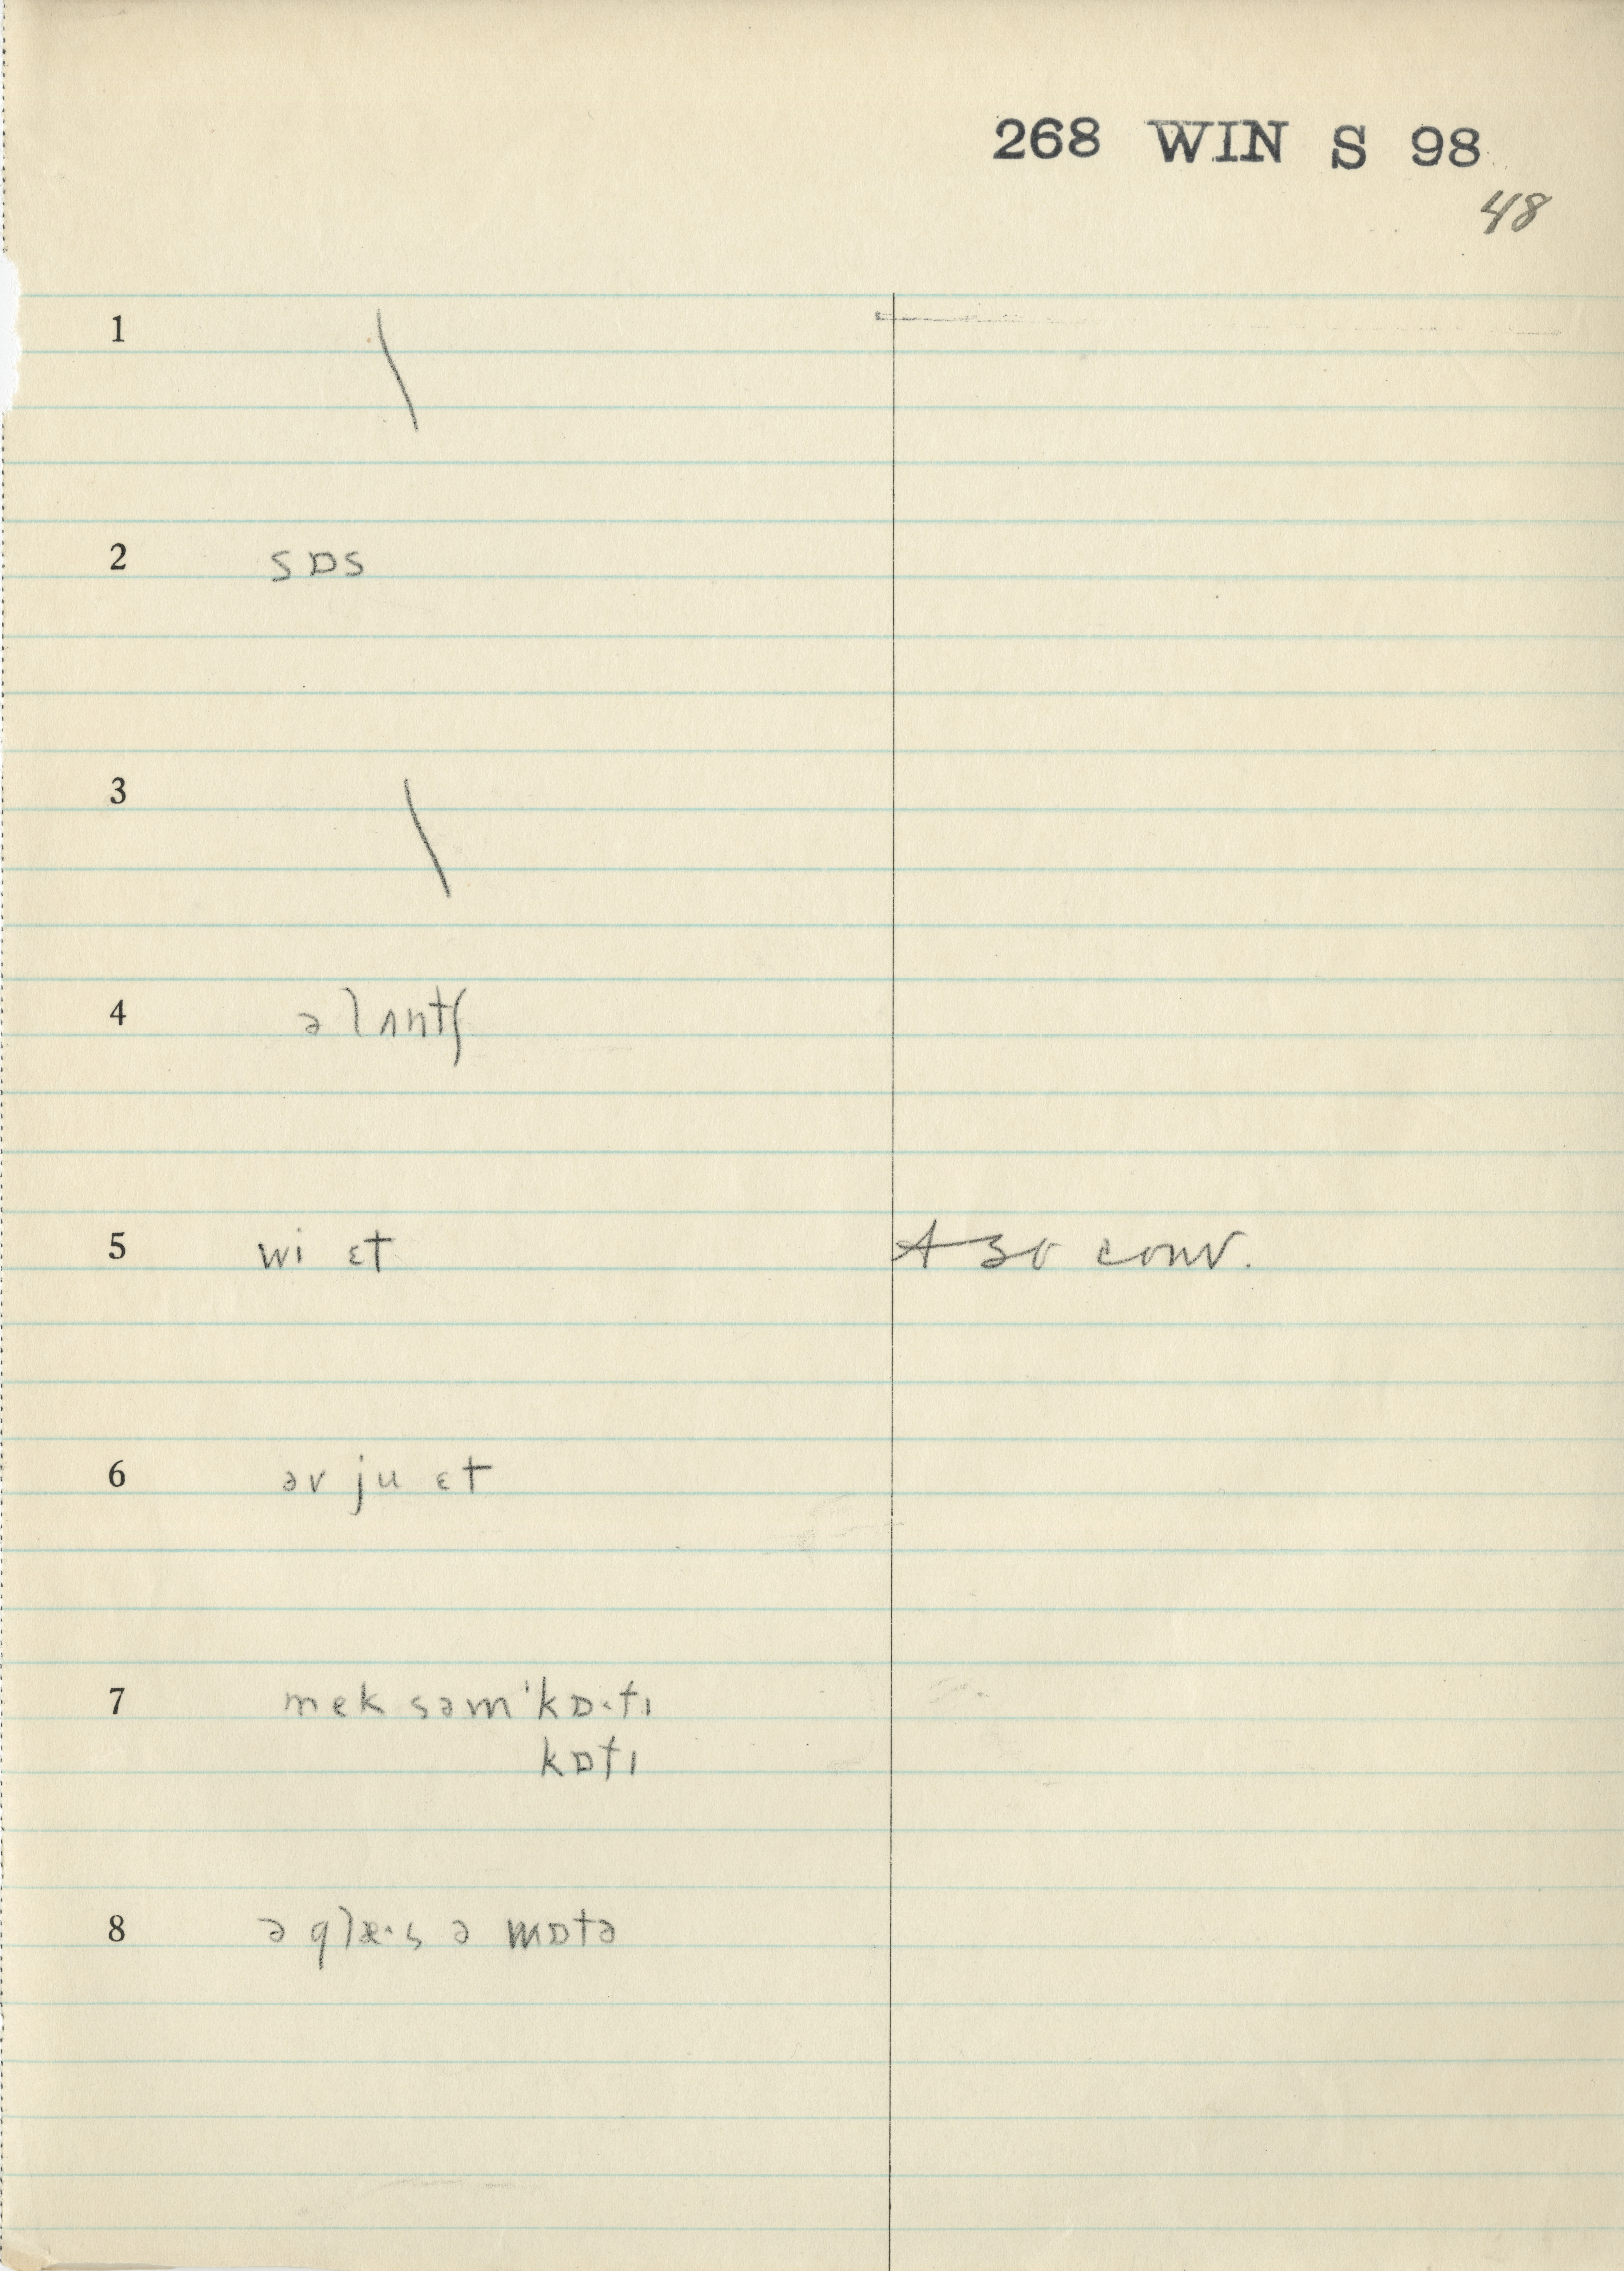 268 WIN S 98
48
1 \
2 sɒs
3 \
4 ə lʌntʃ
5 wi ɛt
6 əv ju ɛt
7 mek səm ˈkɒ·tɪ
kɒtɪ
8 ə glæ·s ə wɒtə